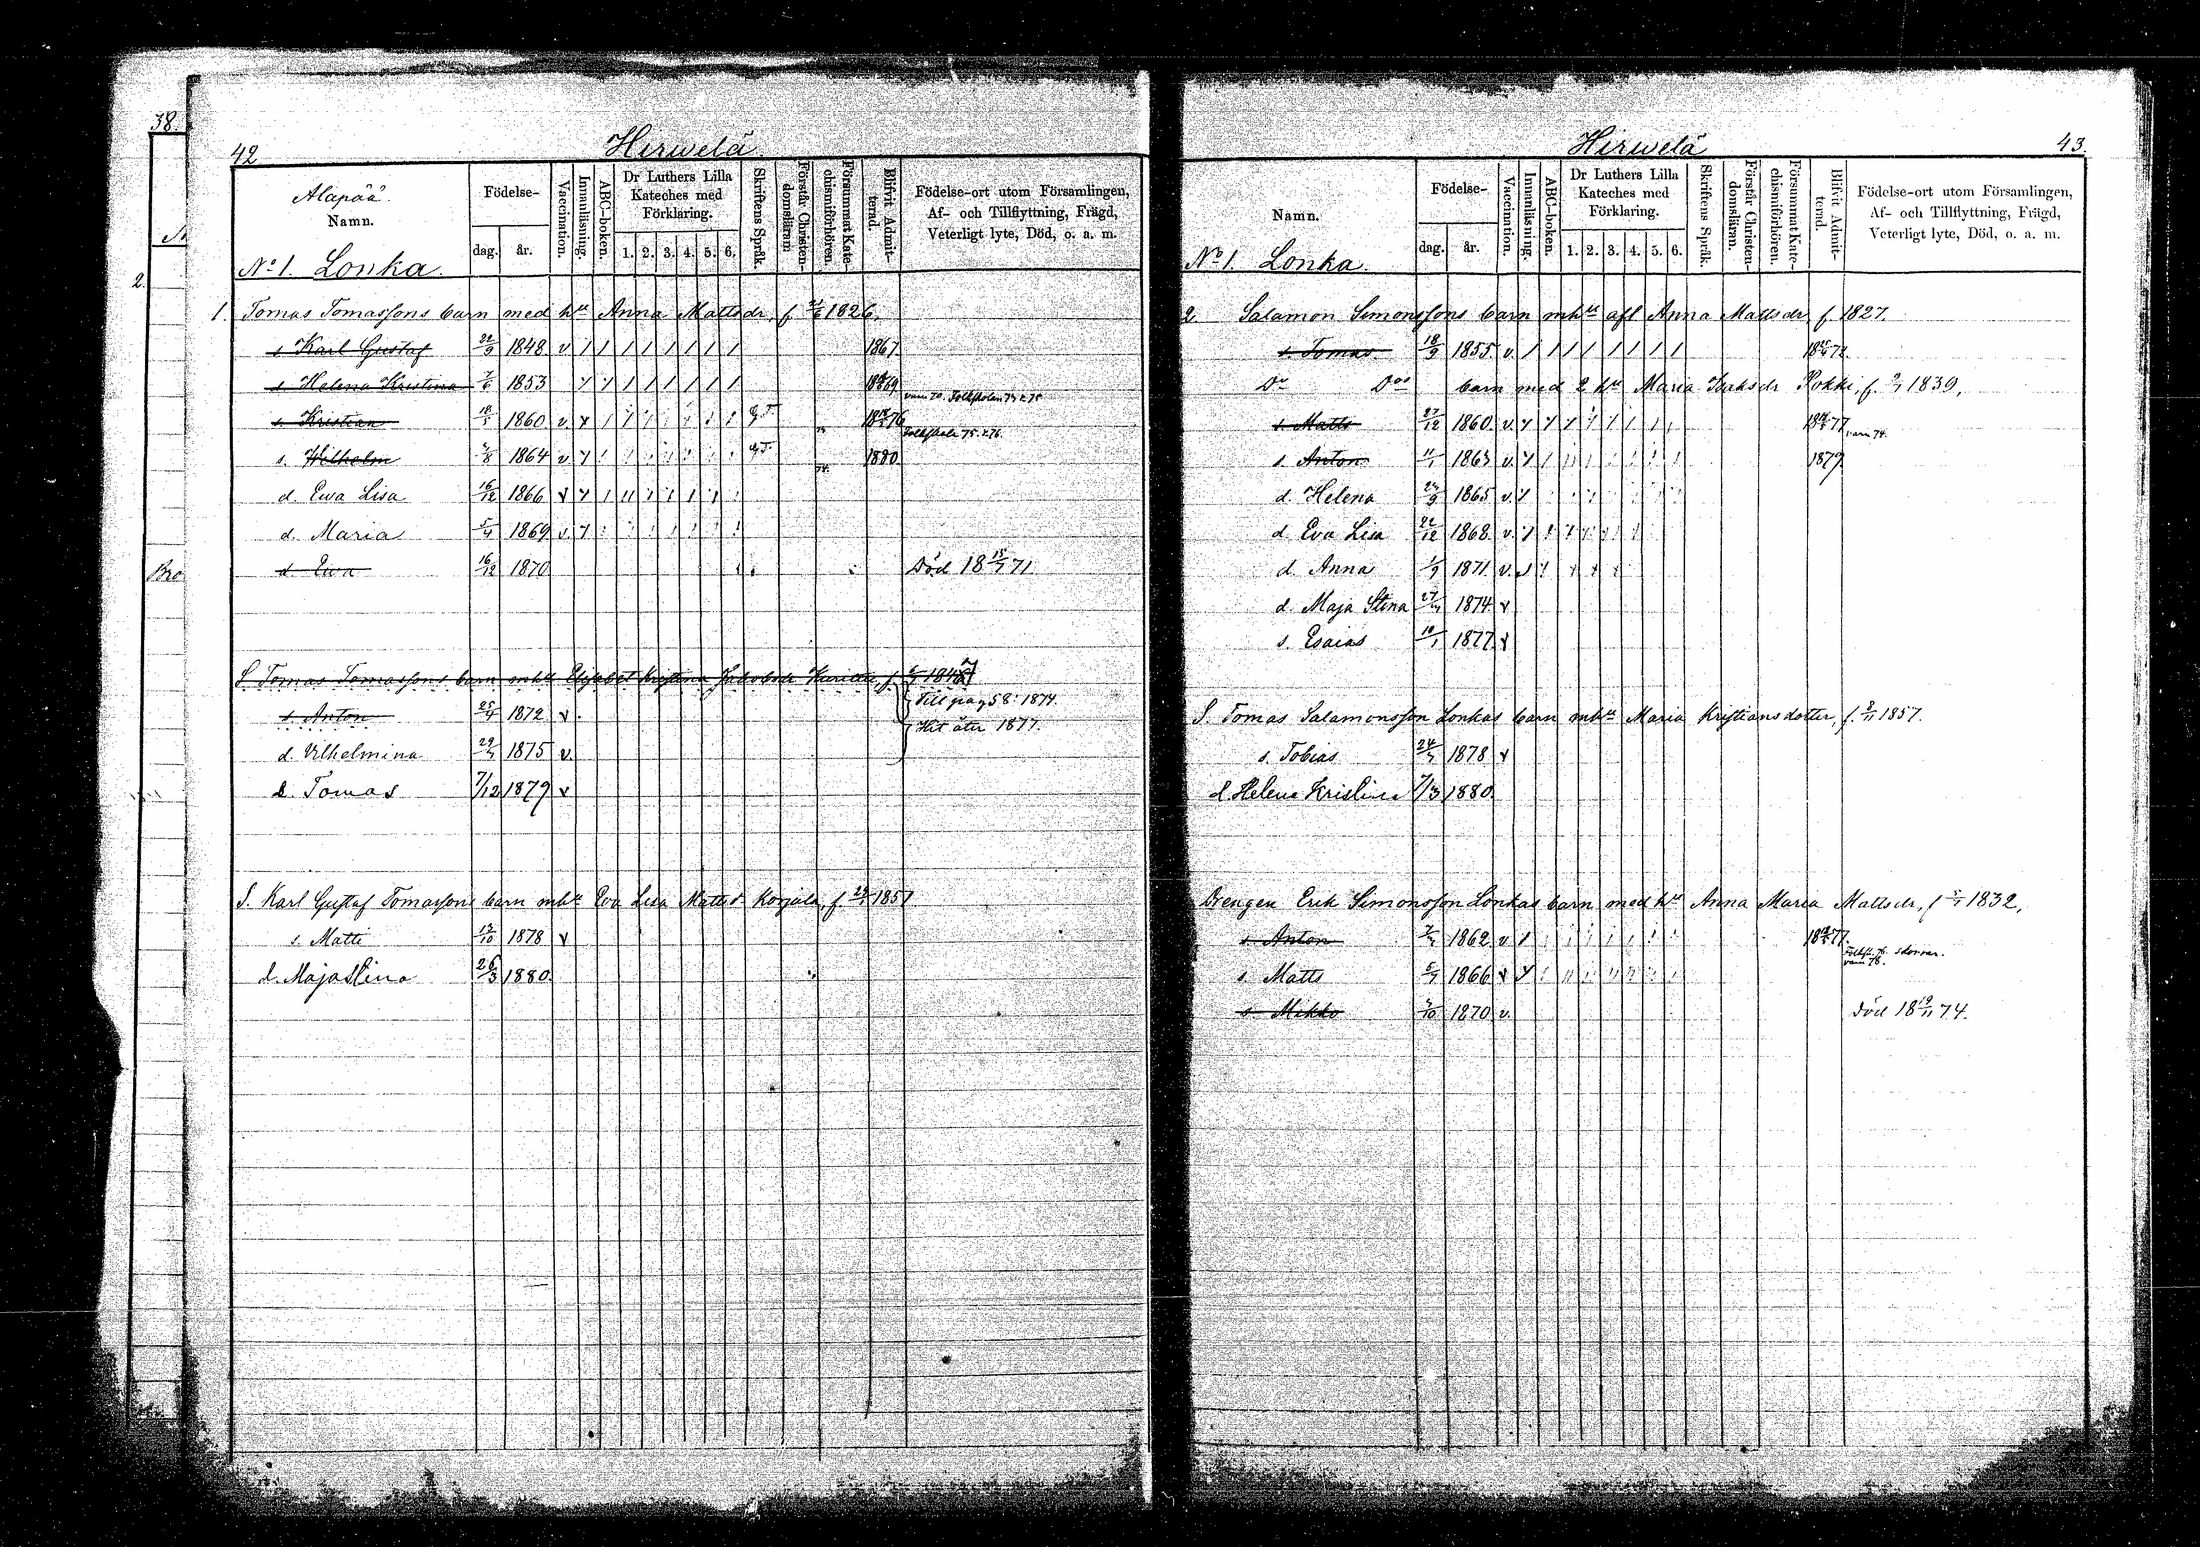 38.
42
Hirwelä
Alapää.
Namn.
No 1. Lonka.
Födelse-
dag. år.
Vaccination.
Innanläsning.
ABC-boken.
Dr Luthers Lilla Kateches med Förklaring.
1. 2. 3. 4. 5. 6.
Skriftens Språk.
Förstår Christendomsläran.
Försummat Katechismiförhören.
Blifvit Admitterad.
Födelse-ort utom Församlingen,
Af- och Tillflyttning, Frägd,
Veterligt lyte, Död, o. a. m.
2.
Bro
1. Tomas Tomassons barn med hu Anna Mattsdr, f 1826.
s Karl Gustaf 22/9 1848 v 1867
d Helena Kristina 7/6 1853 1869
s Kristian 18/5 1860 v 1876
Folkskola 75 t 76
s. Wilhelm 1864 v 1880
d. Ewa Lisa 16/12 1866 v
d. Maria 5/4 1869 v
d Ewa 16/12 1870 Död 18 71.
S Tomas Tomassons barn mhu Elisabet Kristina Jakobsdr
s. Anton 25/4 1872 v Till pag 58: 1874.
Hit åter 1877.
d. Vilhelmina 1875 v.
Tomas 7/12 1879 v
S. Karl Gustaf Tomasson barn mhu Eva Lisa Mattsd Korjala, f 1851
s. Matti 13/10 1878 v
d. Maja Stina 26/3 1880.
Hirwelä
43.
Namn.
No 1. Lonka.
Födelse-
dag. år.
Vaccination.
Innanläsning.
ABC-boken.
Dr Luthers Lilla Kateches med Förklaring.
1. 2. 3. 4. 5. 6.
Skriftens Språk.
Förstår Christendomsläran.
Försummat Katechismiförhören.
Blifvit Admitterad.
Födelse-ort utom Församlingen,
Af- och Tillflyttning, Frägd,
Veterligt lyte, Död, o. a. m.
2. Salamon Simonssons barn mhu afl Anna Mattsdr f 1827.
s. Tomas 18/9 1855 v. 1872
Do Doo barn med 2 hu Maria Isaksdr Pokki, f. 1839,
s. Matts 27/12 1860 v. 1877
s. Anton 11/1 1863 v. 1879
d. Helena 1865 v.
d Eva Lisa 22/12 1868 v.
d. Anna 1/9 1871 v.
d. Maja Stina 1874 v
s. Esaias 10/1 1877 v
S. Tomas Salamonsson Lonkas barn mhu Maria Kristiansdotter, f. 1857.
s. Tobias 1878 v
d. Helena Kristina 7/3 1880.
Drengen Erik Simonsson Lonkas barn med hu Anna Maria Mattsdr, f 1832,
s Anton 1862 v 1877
s. Matts 1866 v
s. Mikko 1870 v. Död 18 19/11 74.